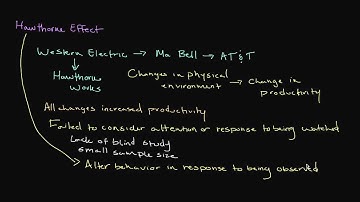 Hawthorne Effect
Western Electric → Ma Bell → AT&T
Hawthorne Works
Changes in physical environment → change in productivity
All changes increased productivity
Failed to consider attention or response to being watched
Lack of blind study
small sample size
Alter behavior in response to being observed